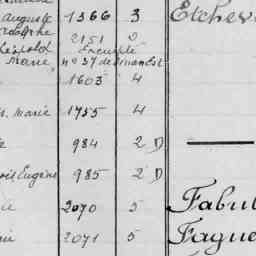 Auguste 1366 3 Etchev
Adolphe 2151 2
Léopold Exempté
Marie no 37 de
1603 4
s. Marie 1755 4
984 2 D
ois Eugène 985 2 D
2070 5 Fabul
2071 5 Fague